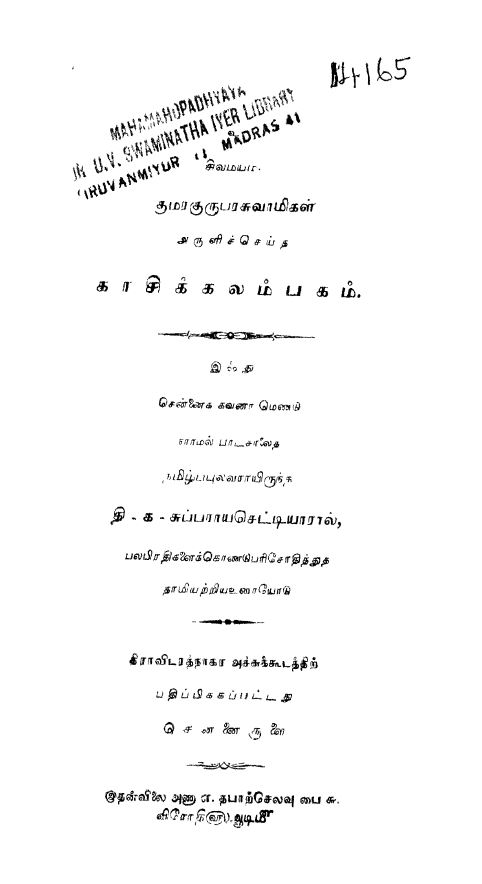 14165
MAHAMAHOPADHYAYA
U.V. SWAMINATHA IYER LIBRARY
TIRUVANMIYUR MADRAS 41
சிவமயம்.
குமரகுருபரசுவாமிகள்
அருளிச்செய்த
காசிக்கலம்பகம்.
இது
சென்னைக் கவர்ன்மெண்டு
நார்மல் பாடசாலைத்
தமிழ்ப்புலவராயிருந்த
தி - க - சுப்பராயசெட்டியாரால்,
பலபிரதிகளைக்கொண்டுபரிசோதித்துத்
தாமியற்றியஉரையோடு
திராவிடரத்நாகர அச்சுக்கூடத்திற்
பதிப்பிக்கப்பட்டது
சென்னை
இதன்விலை அணா எ. தபாற்செலவு பை சு.
ஆடிமீ